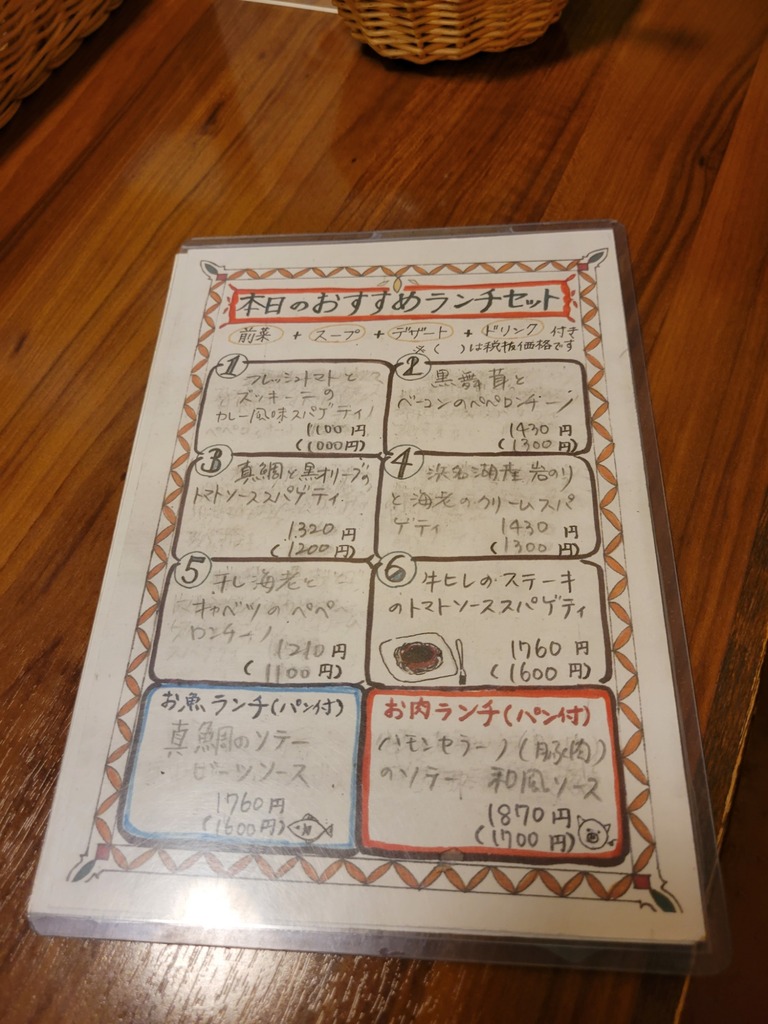 本日のおすすめランチセット
前菜 + スープ + デザート + ドリンク 付き
※( )は税抜価格です
1
フレッシュトマトと
ズッキーニの
カレー風味スパゲティ
1100円
(1000円)
2
黒舞茸と
ベーコンのペペロンチーノ
1430円
(1300円)
3
真鯛と黒オリーブの
トマトソーススパゲティ
1320円
(1200円)
4
浜名湖産岩のり
と海老のクリームスパ
ゲティ
1430円
(1300円)
5
干し海老と
キャベツのペペ
ロンチーノ
1210円
(1100円)
6
牛ヒレのステーキ
のトマトソーススパゲティ
1760円
(1600円)
お魚ランチ(パン付)
真鯛のソテー
ビーツソース
1760円
(1600円)
お肉ランチ(パン付)
ハモンセラーノ(豚肉)
のソテー 和風ソース
1870円
(1700円)